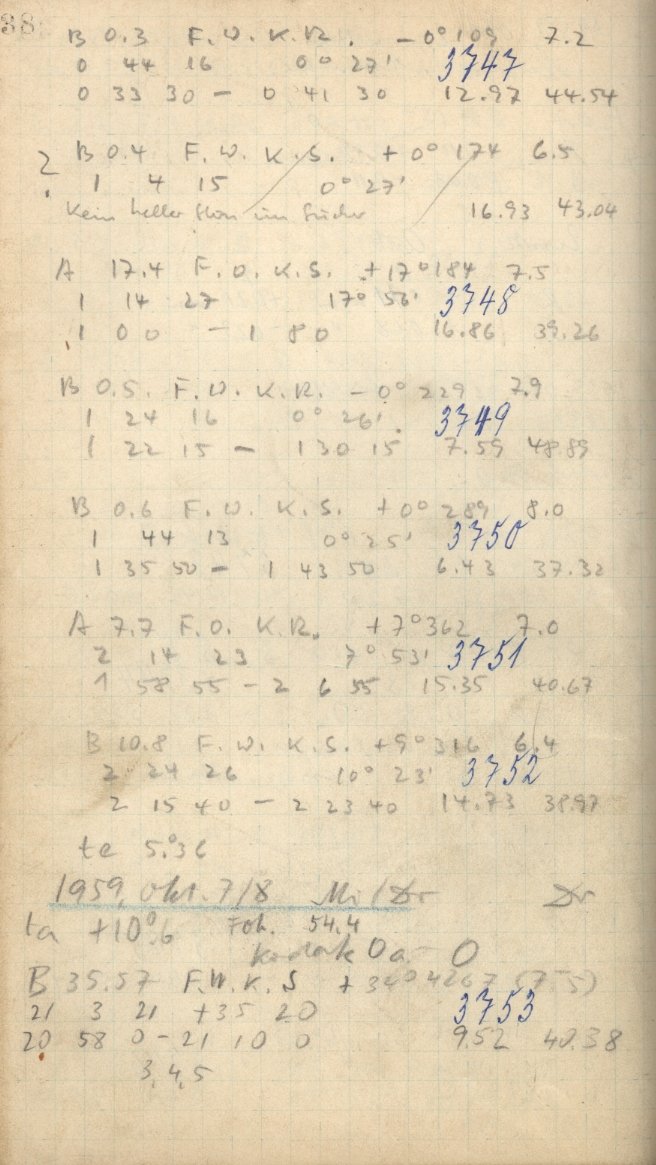 38
B 0.3 F. W. K. R. -0° 109 7.2
0 44 16 0° 27' 3747
0 33 30 - 0 41 30 12.97 44.54
? B 0.4 F. W. K. S. +0° 174 6.5
1 4 15 0° 27'
Kein heller Stern im Sucher 16.93 43.04
A 17.4 F. O. K. S. +17° 184 7.5
1 14 27 17° 56' 3748
1 0 0 - 1 8 0 16.86 39.26
B 0.5. F. W. K. R. -0° 229 7.9
1 24 16 0° 26' 3749
1 22 15 - 1 30 15 7.59 48.89
B 0.6 F. W. K. S. +0° 289 8.0
1 44 13 0° 25' 3750
1 35 50 - 1 43 50 6.43 37.32
A 7.7 F. O. K. R. +7° 362 7.0
2 14 23 7° 53' 3751
1 58 55 - 2 6 55 15.35 40.67
B 10.8 F. W. K. S. +9° 316 6.4
2 24 26 10° 23' 3752
2 15 40 - 2 23 40 14.73 38.97
te 5.°36
1959, Okt. 7/8 Mi/Dr Dr
ta +10°.6 Fok. 54.4
Kodak Oa - O
B 35.57 F. W. K. S +34° 4267 (7.5)
21 3 21 +35 20 3753
20 58 0 - 21 10 0 9.52 40.38
3, 4, 5